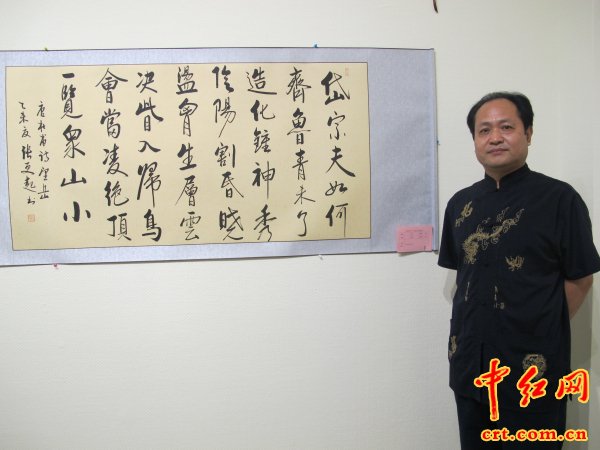 岱宗夫如何
齊魯青未了
造化鐘神秀
陰陽割昏曉
盪胷生層雲
決眥入歸鳥
會當凌絕頂
一覽衆山小
唐杜甫詩望岳
乙未夏張
中红网
crt.com.cn